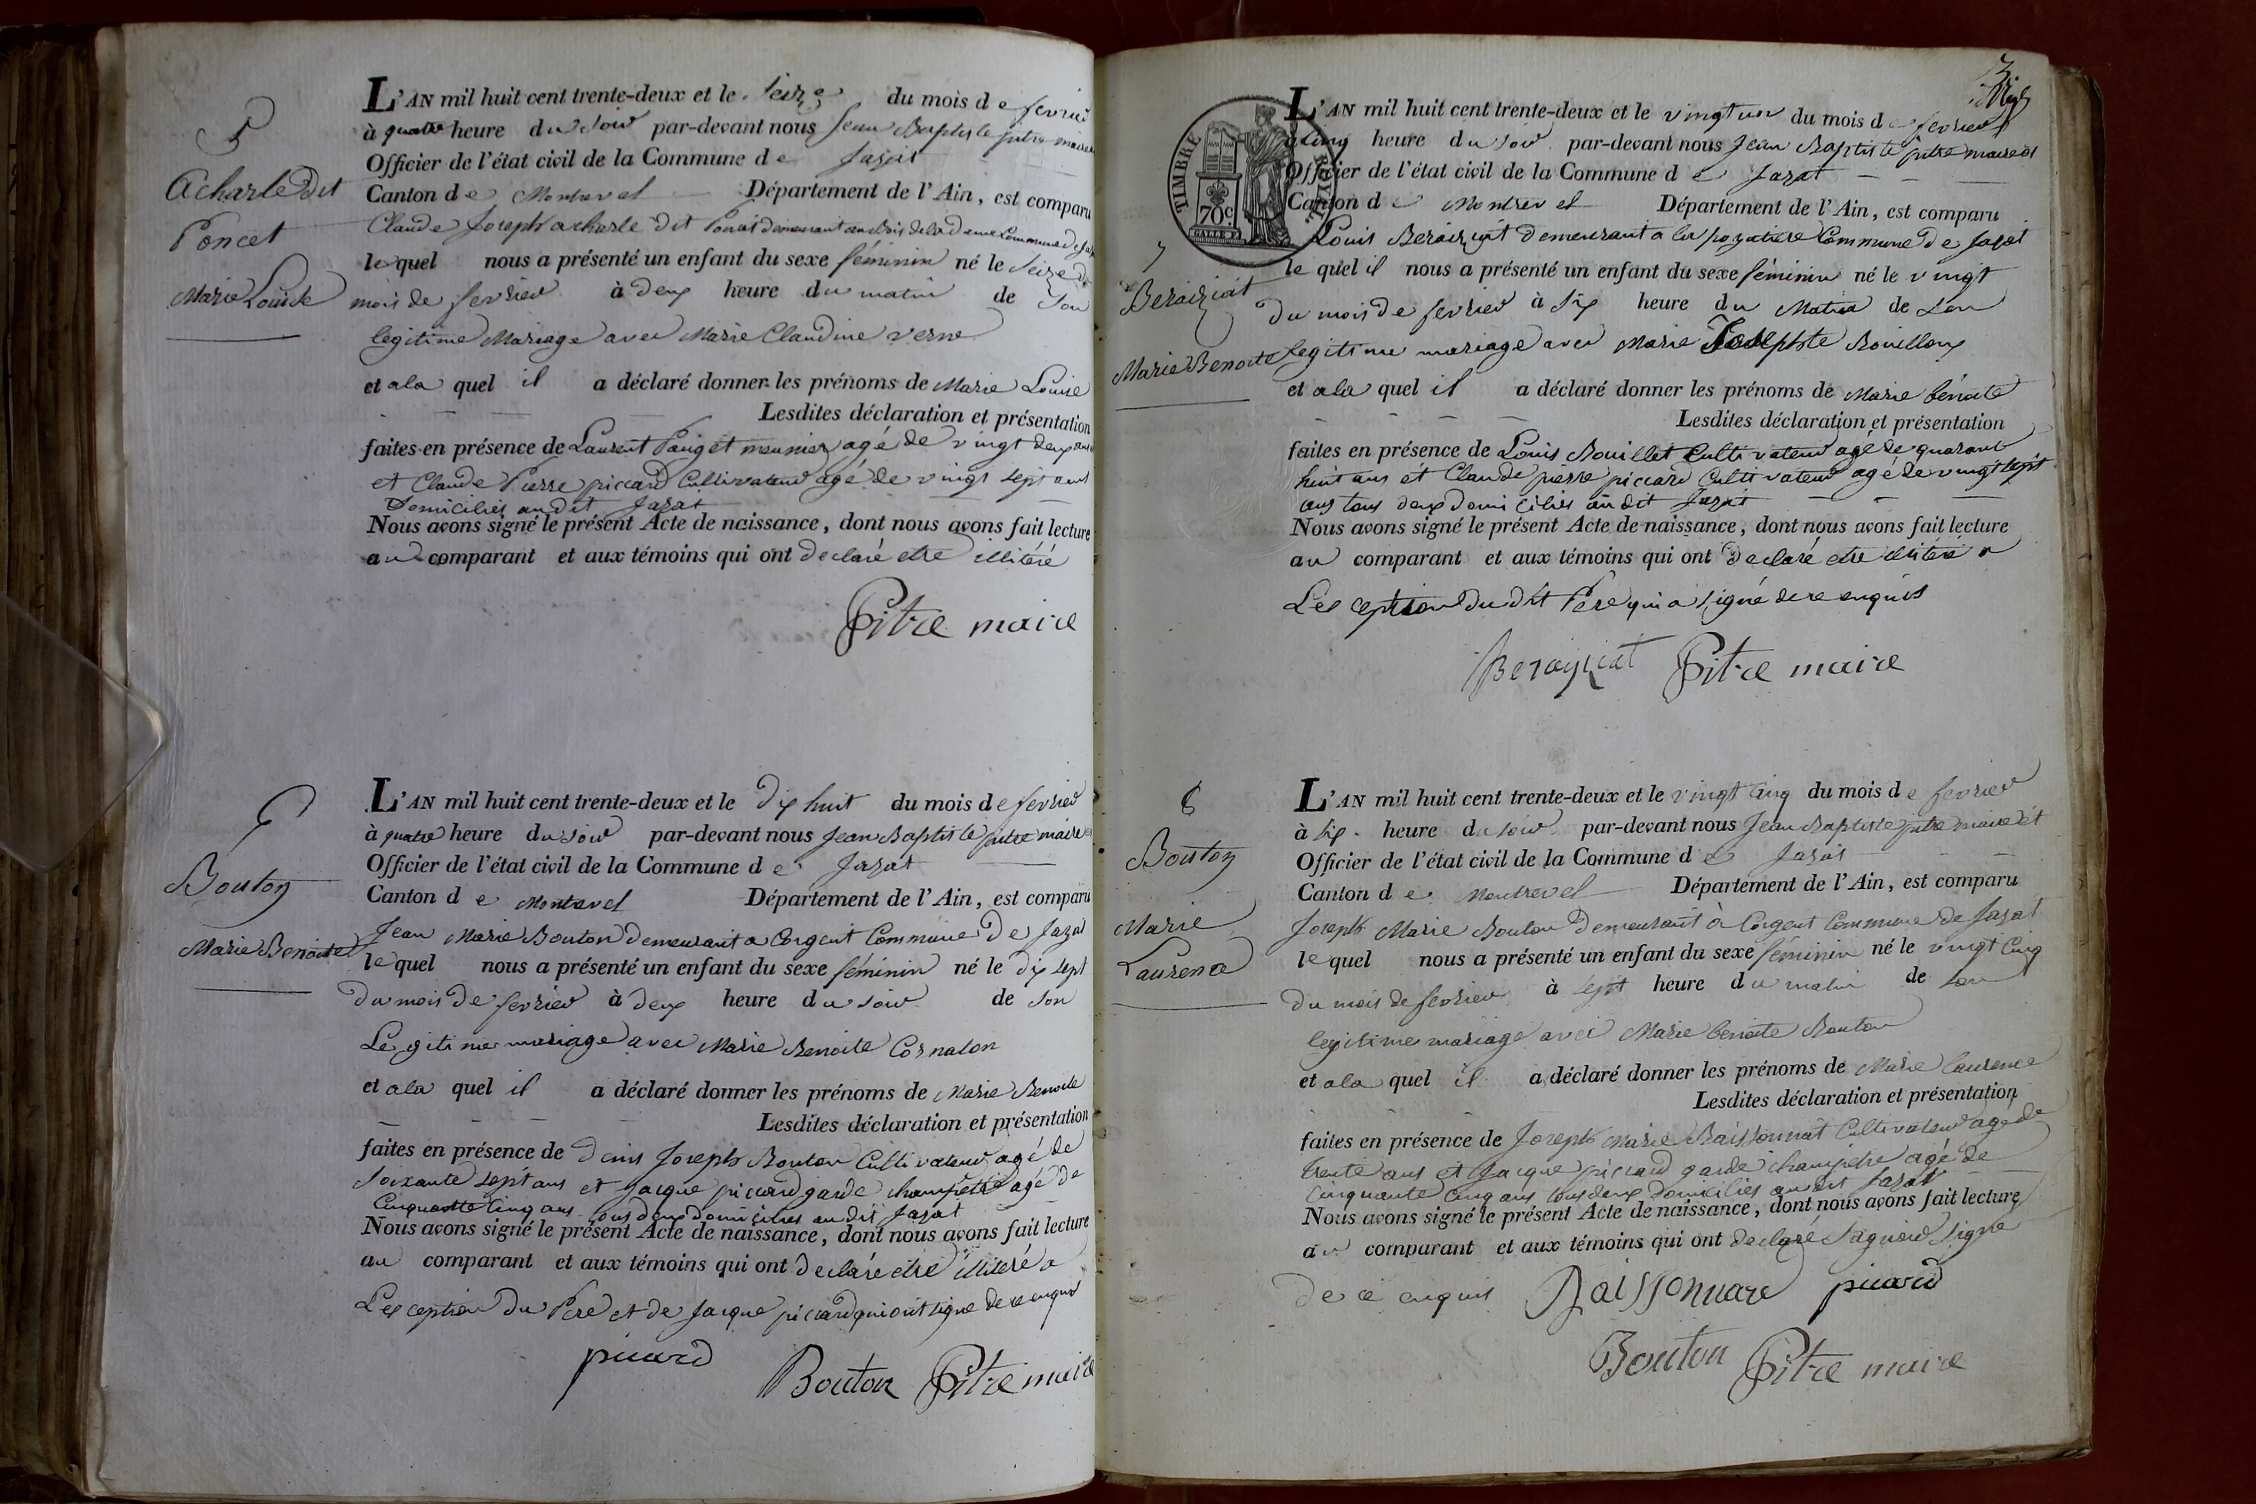 5
Acharle dit
Poncet
Marie Louise
L'AN mil huit cent trente-deux et le seize du mois de fevrier
à quatre heure du soir par-devant nous Jean Baptiste pitre maire
Officier de l'état civil de la Commune de Jayat
Canton de Montrevel Département de l'Ain, est comparu
Claude Joseph acharle dit demeurant au bois de la dame Commune de
lequel nous a présenté un enfant du sexe féminin né le seize du
mois de fevrier à deux heure du matin de son
legitime Mariage avec Marie Claudine verne
et a la quel il a déclaré donner les prénoms de Marie Louise
Lesdites déclaration et présentation
faites en présence de Laurent Pauget meunier agé de vingt deux ans
et Claude Pierre piccard Cultivateur agé de vingt sept ans
Domiciliés audit Jayat
Nous avons signé le présent Acte de naissance, dont nous avons fait lecture
au comparant et aux témoins qui ont declaré etre illitéré
Pitre maire
6
Bouton
Marie Benoite
L'AN mil huit cent trente-deux et le dix huit du mois de fevrier
à quatre heure du soir par-devant nous Jean Baptiste pitre maire
Officier de l'état civil de la Commune de Jayat
Canton de Montrevel Département de l'Ain, est comparu
Jean Marie Bouton demeurant a Corgent Commune De Jayat
lequel nous a présenté un enfant du sexe féminin né le dix sept
du mois de fevrier à deux heure du soir de son
Legitime mariage avec Marie Benoite Cornaton
et a la quel il a déclaré donner les prénoms de Marie Benoite
Lesdites déclaration et présentation
faites en présence de denis Joseph Bouton Cultivateur agé de
soixante sept ans et Jacque piccard garde champetre agé de
Cinquante Cinq ans tous deux domiciliés au dit Jayat
Nous avons signé le présent Acte de naissance, dont nous avons fait lecture
au comparant et aux témoins qui ont declaré etre illiteré a
Lexception du Pere et de Jacque piccard qui ont signe de ce enquis
picard
Bouton Pitre maire
3
7
Beraiziat
Marie Benoite
TIMBRE ROYAL
70c
L'AN mil huit cent trente-deux et le vingt un du mois de fevrier
a cinq heure du soir par-devant nous Jean Baptiste pitre maire et
Officier de l'état civil de la Commune de Jayat
Canton de Montrevel Département de l'Ain, est comparu
Louis Beraiziat demeurant a la Commune de Jayat
le quel il nous a présenté un enfant du sexe féminin né le vingt
du mois de fevrier à six heure du Matin de son
legitime mariage avec Marie Josephte Bouilloux
et a la quel il a déclaré donner les prénoms de Marie bénoite
Lesdites déclaration et présentation
faites en présence de Louis Bouillet Cultivateur agé de quarant
huit ans et Claude pierre piccard Cultivateur agé de vingt sept
ans tous deux domiciliés au dit Jayat
Nous avons signé le présent Acte de naissance, dont nous avons fait lecture
au comparant et aux témoins qui ont declaré etre illitéré a
Lexception du dit Pere qui a signé de ce enquis
Berayziat Pitre maire
8
Bouton
Marie
Laurence
L'AN mil huit cent trente-deux et le vingt cinq du mois de fevrier
à six heure du soir par-devant nous Jean Baptiste pitre maire et
Officier de l'état civil de la Commune de Jayat
Canton de Montrevel Département de l'Ain, est comparu
Joseph Marie Bouton demeurant à Corgent Commune de Jayat
lequel nous a présenté un enfant du sexe féminin né le vingt Cinq
du mois de fevrier à sept heure du matin de son
legitime mariage avec Marie benoite Bouton
et a la quel il a déclaré donner les prénoms de Marie laurence
Lesdites déclaration et présentation
faites en présence de Joseph Marie Baissonnat Cultivateur agé de
trente ans et Jacque piccard garde champetre agé de
Cinquante Cinq ans tous deux domiciliés au dit Jayat
Nous avons signé le présent Acte de naissance, dont nous avons fait lecture
au comparant et aux témoins qui ont declaré signe
de ce enquis picard
Bouton Pitre maire